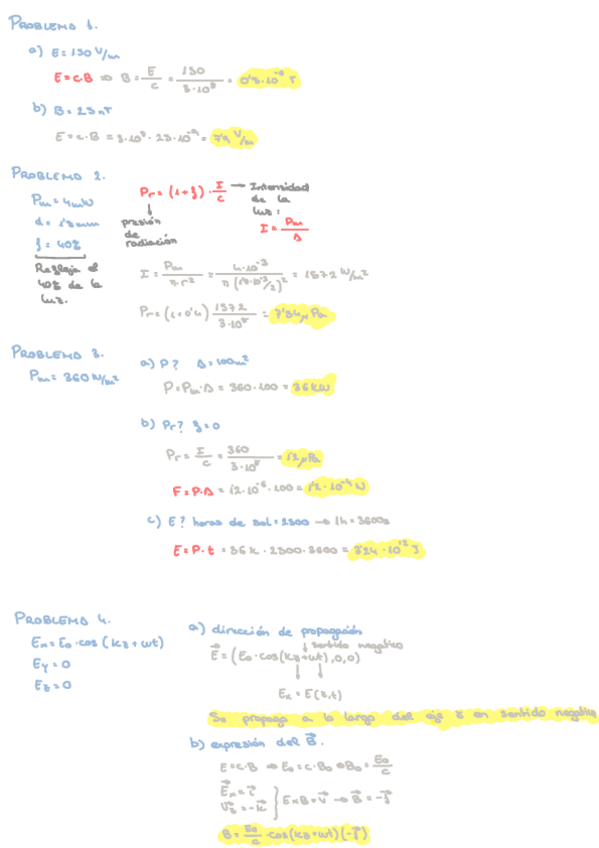 PROBLEMA 1.
a) E = 150 V/m
E = c·B ⇒ B = E/c = 150/3·10⁸ = 0'5·10⁻⁶ T
b) B = 25 nT
E = c·B = 3·10⁸ · 25·10⁻⁹ = V/m
PROBLEMA 2.
Pm = 4mW
d = 1'8mm
f = 40%
Refleja el 40% de la luz.
Pr = (1+f) · I/c → Intensidad de la luz:
presión de radiación
I = Pm/S
I = Pm/π·r² = 4·10⁻³/π(1'8·10⁻³/2)² = 1572 W/m²
Pr = (1+0'4) 1572/3·10⁸ = 7'34 μPa
PROBLEMA 3.
Pm = 360 W/m²
a) P? S = 100m²
P = Pm·S = 360·100 = 36kW
b) Pr? f = 0
Pr = I/c = 360/3·10⁸ = 1'2 μPa
F = P·S = 1'2·10⁻⁶·100 = 1'2·10⁻⁴ N
c) E? horas de sol = 2500 → 1h = 3600s
E = P·t = 36k · 2500·3600 = 3'24·10¹¹ J
PROBLEMA 4.
Ex = E₀·cos(kz+ωt)
Ey = 0
Ez = 0
a) dirección de propagación
↓ sentido negativo
E⃗ = (E₀·cos(kz+ωt),0,0)
Ex = E(z,t)
Se propaga a lo largo del eje z en sentido negativo
b) expresión del B⃗.
E = c·B ⇒ E₀ = c·B₀ ⇒ B₀ = E₀/c
E⃗x = i⃗
V⃗z = -k⃗
} E×B = v⃗ → B⃗ = -j⃗
B = E₀/c · cos(kz+ωt)(-j⃗)